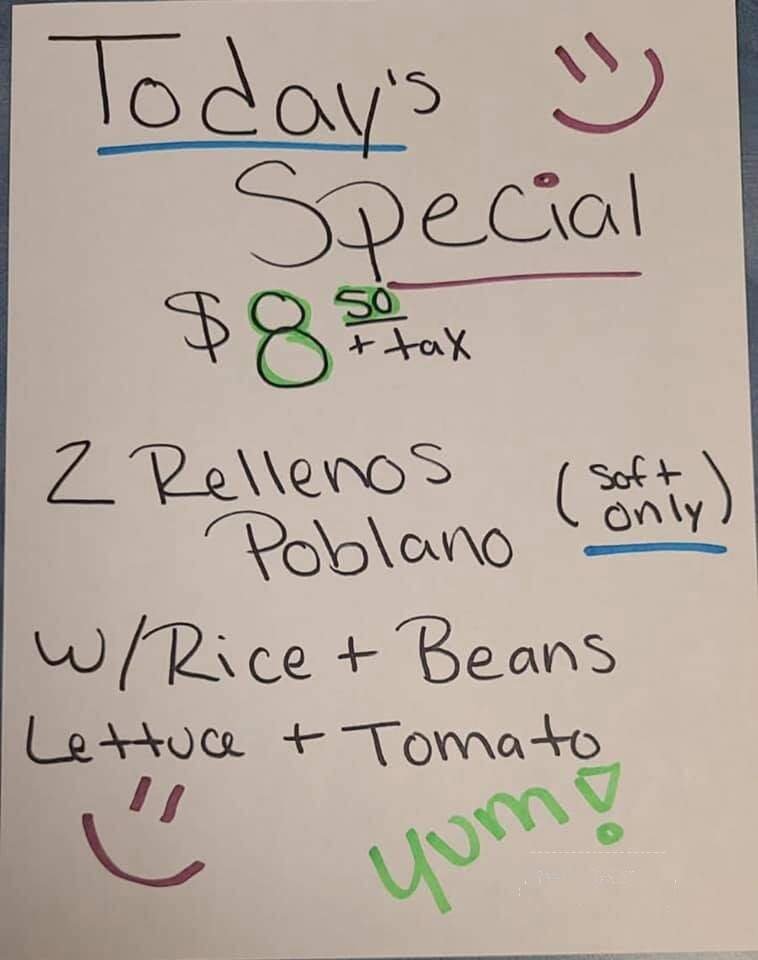 Today's
Special
$8 50 + tax
2 Rellenos
Poblano (soft only)
w/Rice + Beans
Lettuce + Tomato
yum!